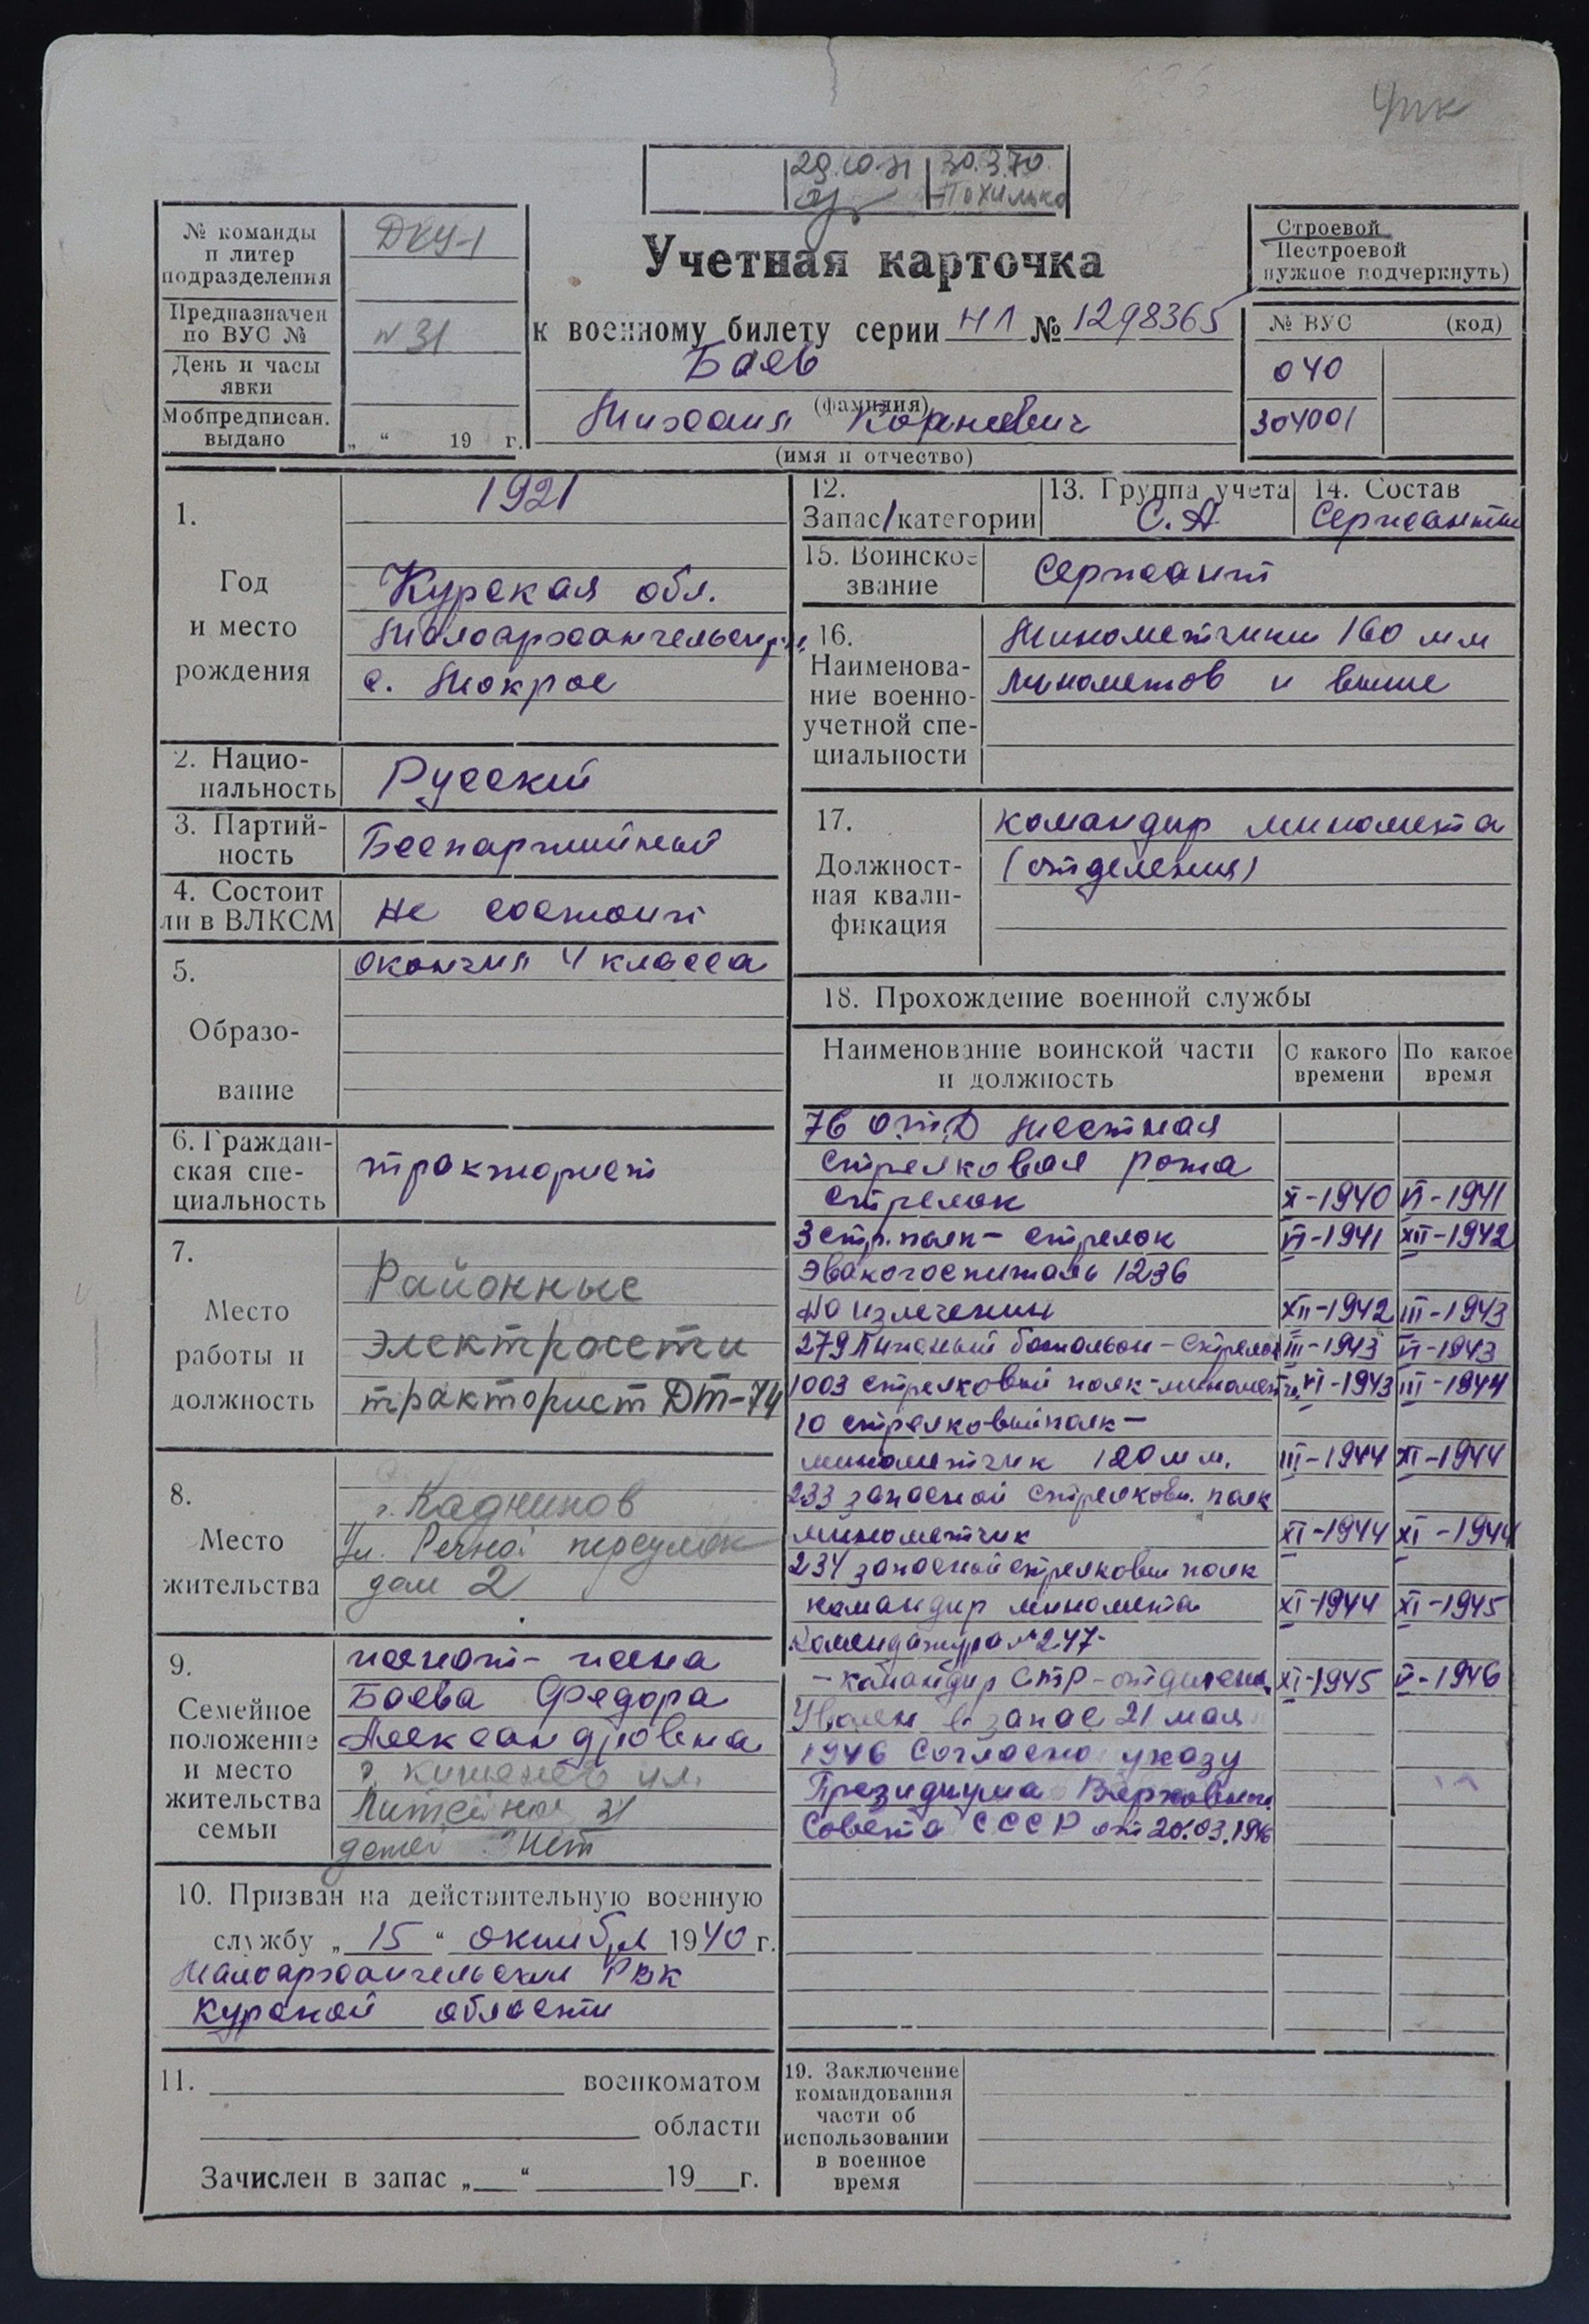 29.10.71 30.3.70
Похилько
№ команды
и литер
подразделения
ДКУ-1
Предназначен
по ВУС №
№31
День и часы
явки
Мобпредписан.
выдано
„ “ 19 г.
Учетная карточка
к военному билету серии НЛ № 1298365
Баев
(фамилия)
Михаил Корнеевич
(имя и отчество)
Строевой
Нестроевой
нужное подчеркнуть)
№ ВУС (код)
040
304001
1.
Год
и место
рождения
1921
Курская обл.
Малоархангельский р-н
с. Мокрое
2. Нацио-
нальность
Русский
3. Партий-
ность
Беспартийный
4. Состоит
ли в ВЛКСМ
не состоит
5.
Образо-
вание
окончил 4 класса
6. Граждан-
ская спе-
циальность
тракторист
7.
Место
работы и
должность
Районные
электросети
тракторист ДТ-74
8.
Место
жительства
г. Кадников
ул. Речной переулок
дом 2
9.
Семейное
положение
и место
жительства
семьи
женат - жена
Баева Федора
Александровна
г. Кишенев ул.
Литейная 31
детей нет
10. Призван на действительную военную
службу „ 15 “ октября 1940 г.
Малоархангельский РВК
Курской области
11. военкоматом
области
Зачислен в запас „ “ 19 г.
12.
Запас/категории
13. Группа учета
С.А
14. Состав
Сержанты
15. Воинское
звание
Сержант
16.
Наименова-
ние военно-
учетной спе-
циальности
Минометчики 160 мм
минометов и выше
17.
Должност-
ная квали-
фикация
командир миномета
(отделения)
18. Прохождение военной службы
Наименование воинской части
и должность
С какого
времени
По какое
время
76 отд местная
стрелковая рота
стрелок X-1940 VI-1941
3 стр. полк - стрелок VI-1941 XII-1942
Эвакогоспиталь 1236
на излечении XII-1942 III-1943
279 Лыжный батальон - стрелок III-1943 VI-1943
1003 стрелковый полк - минометч. VI-1943 III-1944
10 стрелковый полк -
минометчик 120 мм. III-1944 XI-1944
233 запасной стрелковы. полк
минометчик XI-1944 XI-1944
234 запасной стрелковы полк
командир миномета XI-1944 XI-1945
Комендатура №247-
- командир стр - отделения XI-1945 V-1946
Уволен в запас 21 мая
1946 согласно указу
Президиума Верховного
Совета СССР от 20.03.1946
19. Заключение
командования
части об
использовании
в военное
время